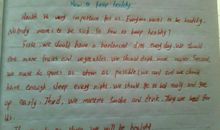 How to keep healthy
Health is very important for us. Everyone wants to be healthy.
Nobody wants to be sick. So how to keep healthy?
First, we should have a balanced diet every day. We should
eat more fruits and vegetables. We should drink more water. Second,
we must do sports as often as possible. And we should
have enough sleep every night. We should go to bed early and get
up early. Third, we mustn't smoke and drink. They are bad for
us.
we will be healthy